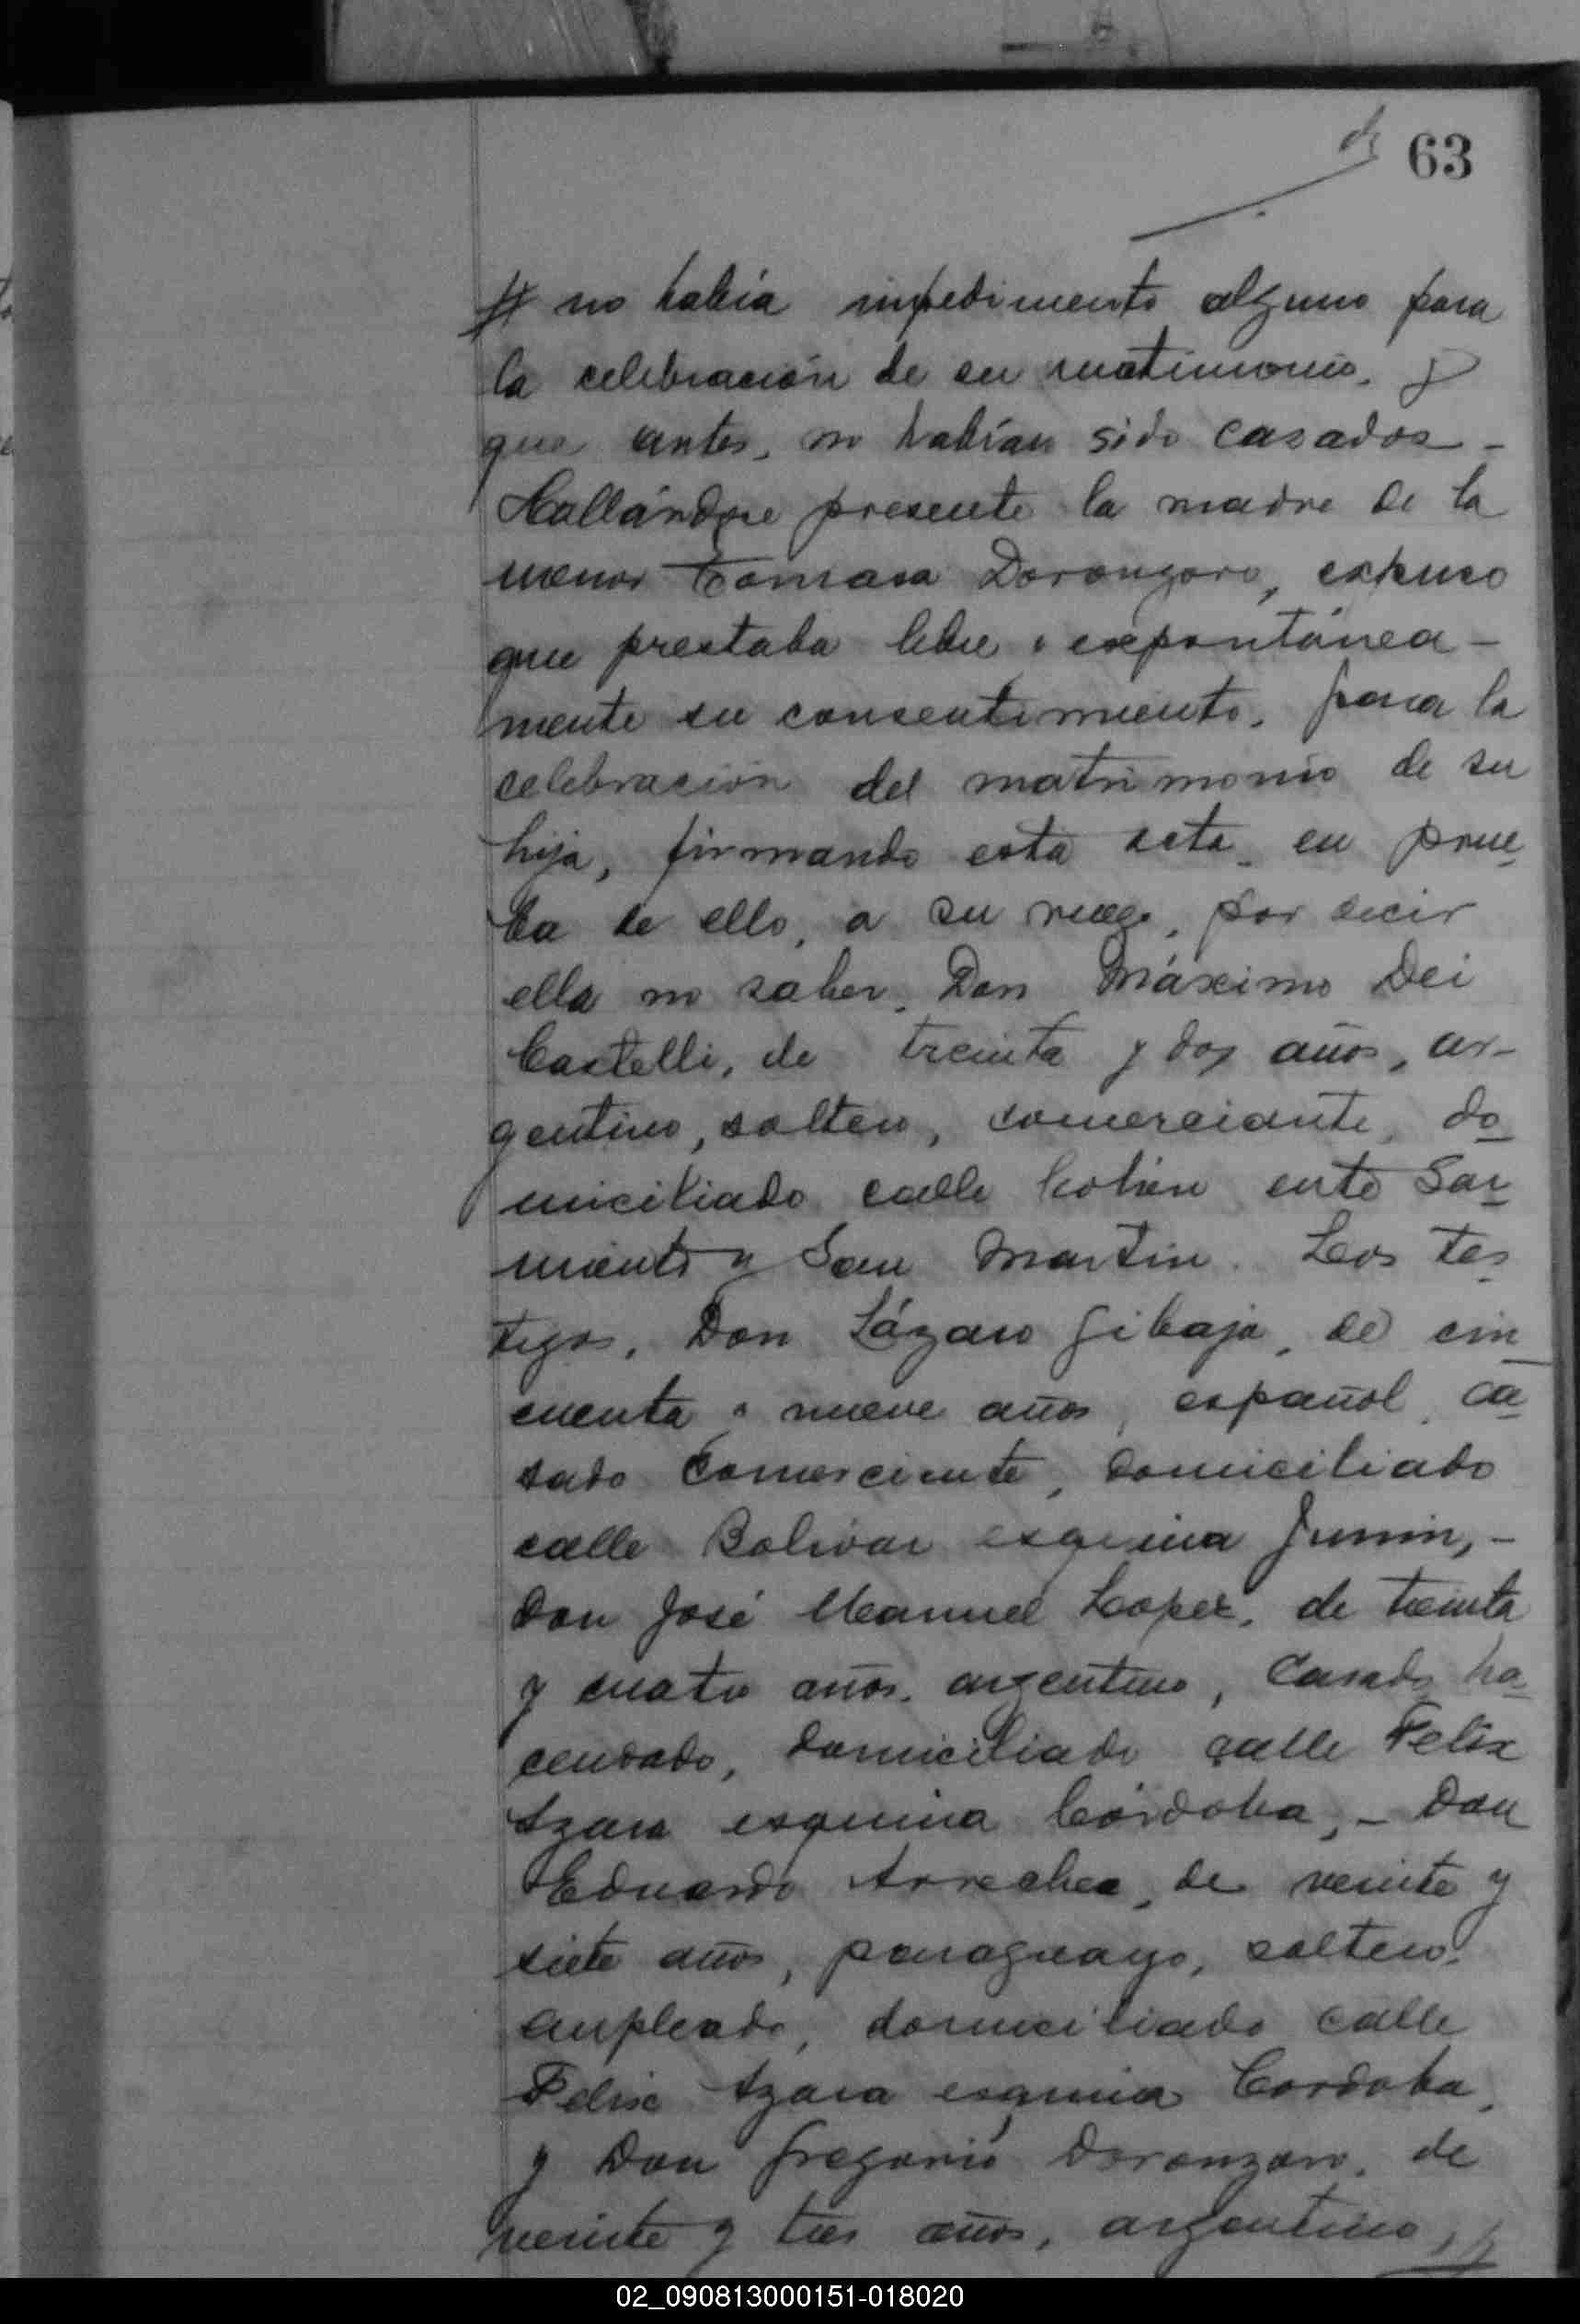 63
no había impedimento alguno para
la celebración de su matrimonio. y
que antes, no habían sido casados -
Hallándose presente la madre de la
menor Tomasa Doronzoro, expuso
que prestaba libre i expontánea-
mente su consentimiento, para la
celebración del matrimonio de su
hija, firmando esta acta en prue-
ba de ello, a su ruego, por decir
ella no saber, Don Máximo Dei
Castelli, de treinta y dos años, ar-
gentino, soltero, comerciante, do-
miciliado calle Colón ente Sar-
miento y San Martin. Los tes-
tigos, Don Lázaro Gibaja, de cin-
cuenta i nueve años, español, ca-
sado comerciante, domiciliado
calle Bolivar esquina Junin, -
Don José Manuel Lopez, de treinta
y cuatro años, argentino, casado ha-
cendado, domiciliado calle Felix
Azara esquina Córdoba, - Don
Eduardo Arrechea, de veinte y
siete años, paraguayo, soltero,
empleado, domiciliado calle
Felix Azara esquina Cordoba,
y Don Gregorio Doronzoro, de
veinte y tres años, argentino,
02_090813000151-018020